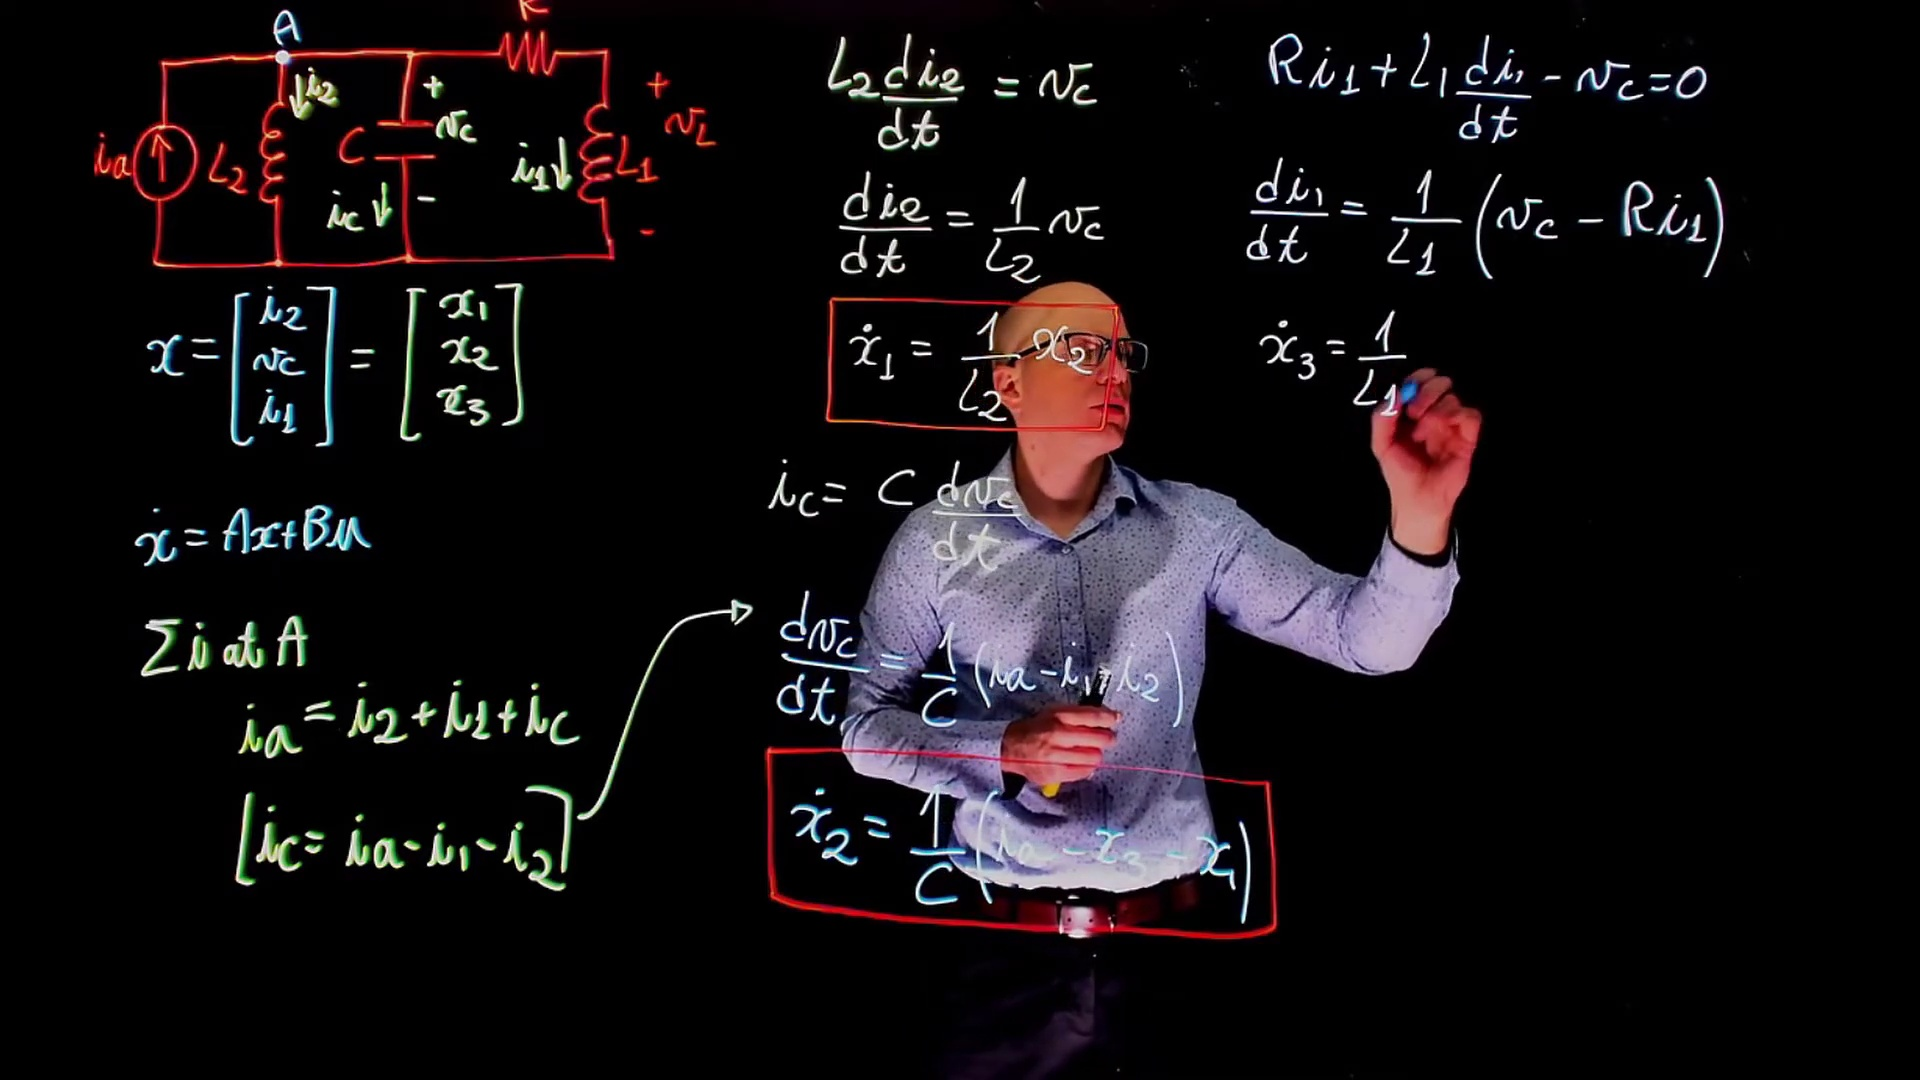 A
R
+ +
i2
vc vL
ia L2 C i1 L1
ic - -
x = [i2 vc i1] = [x1 x2 x3]
ẋ = Ax+Bu
∑i at A
ia = i2+i1+ic
[ic = ia-i1-i2]
L2 di2/dt = vc
di2/dt = 1/L2 vc
ẋ1 = 1/L2 x2
ic = C dvc/dt
dvc/dt = 1/C (ia-i1-i2)
ẋ2 = 1/C (ia - x3 - x1)
Ri1 + L1 di1/dt - vc = 0
di1/dt = 1/L1 (vc - Ri1)
ẋ3 = 1/L1